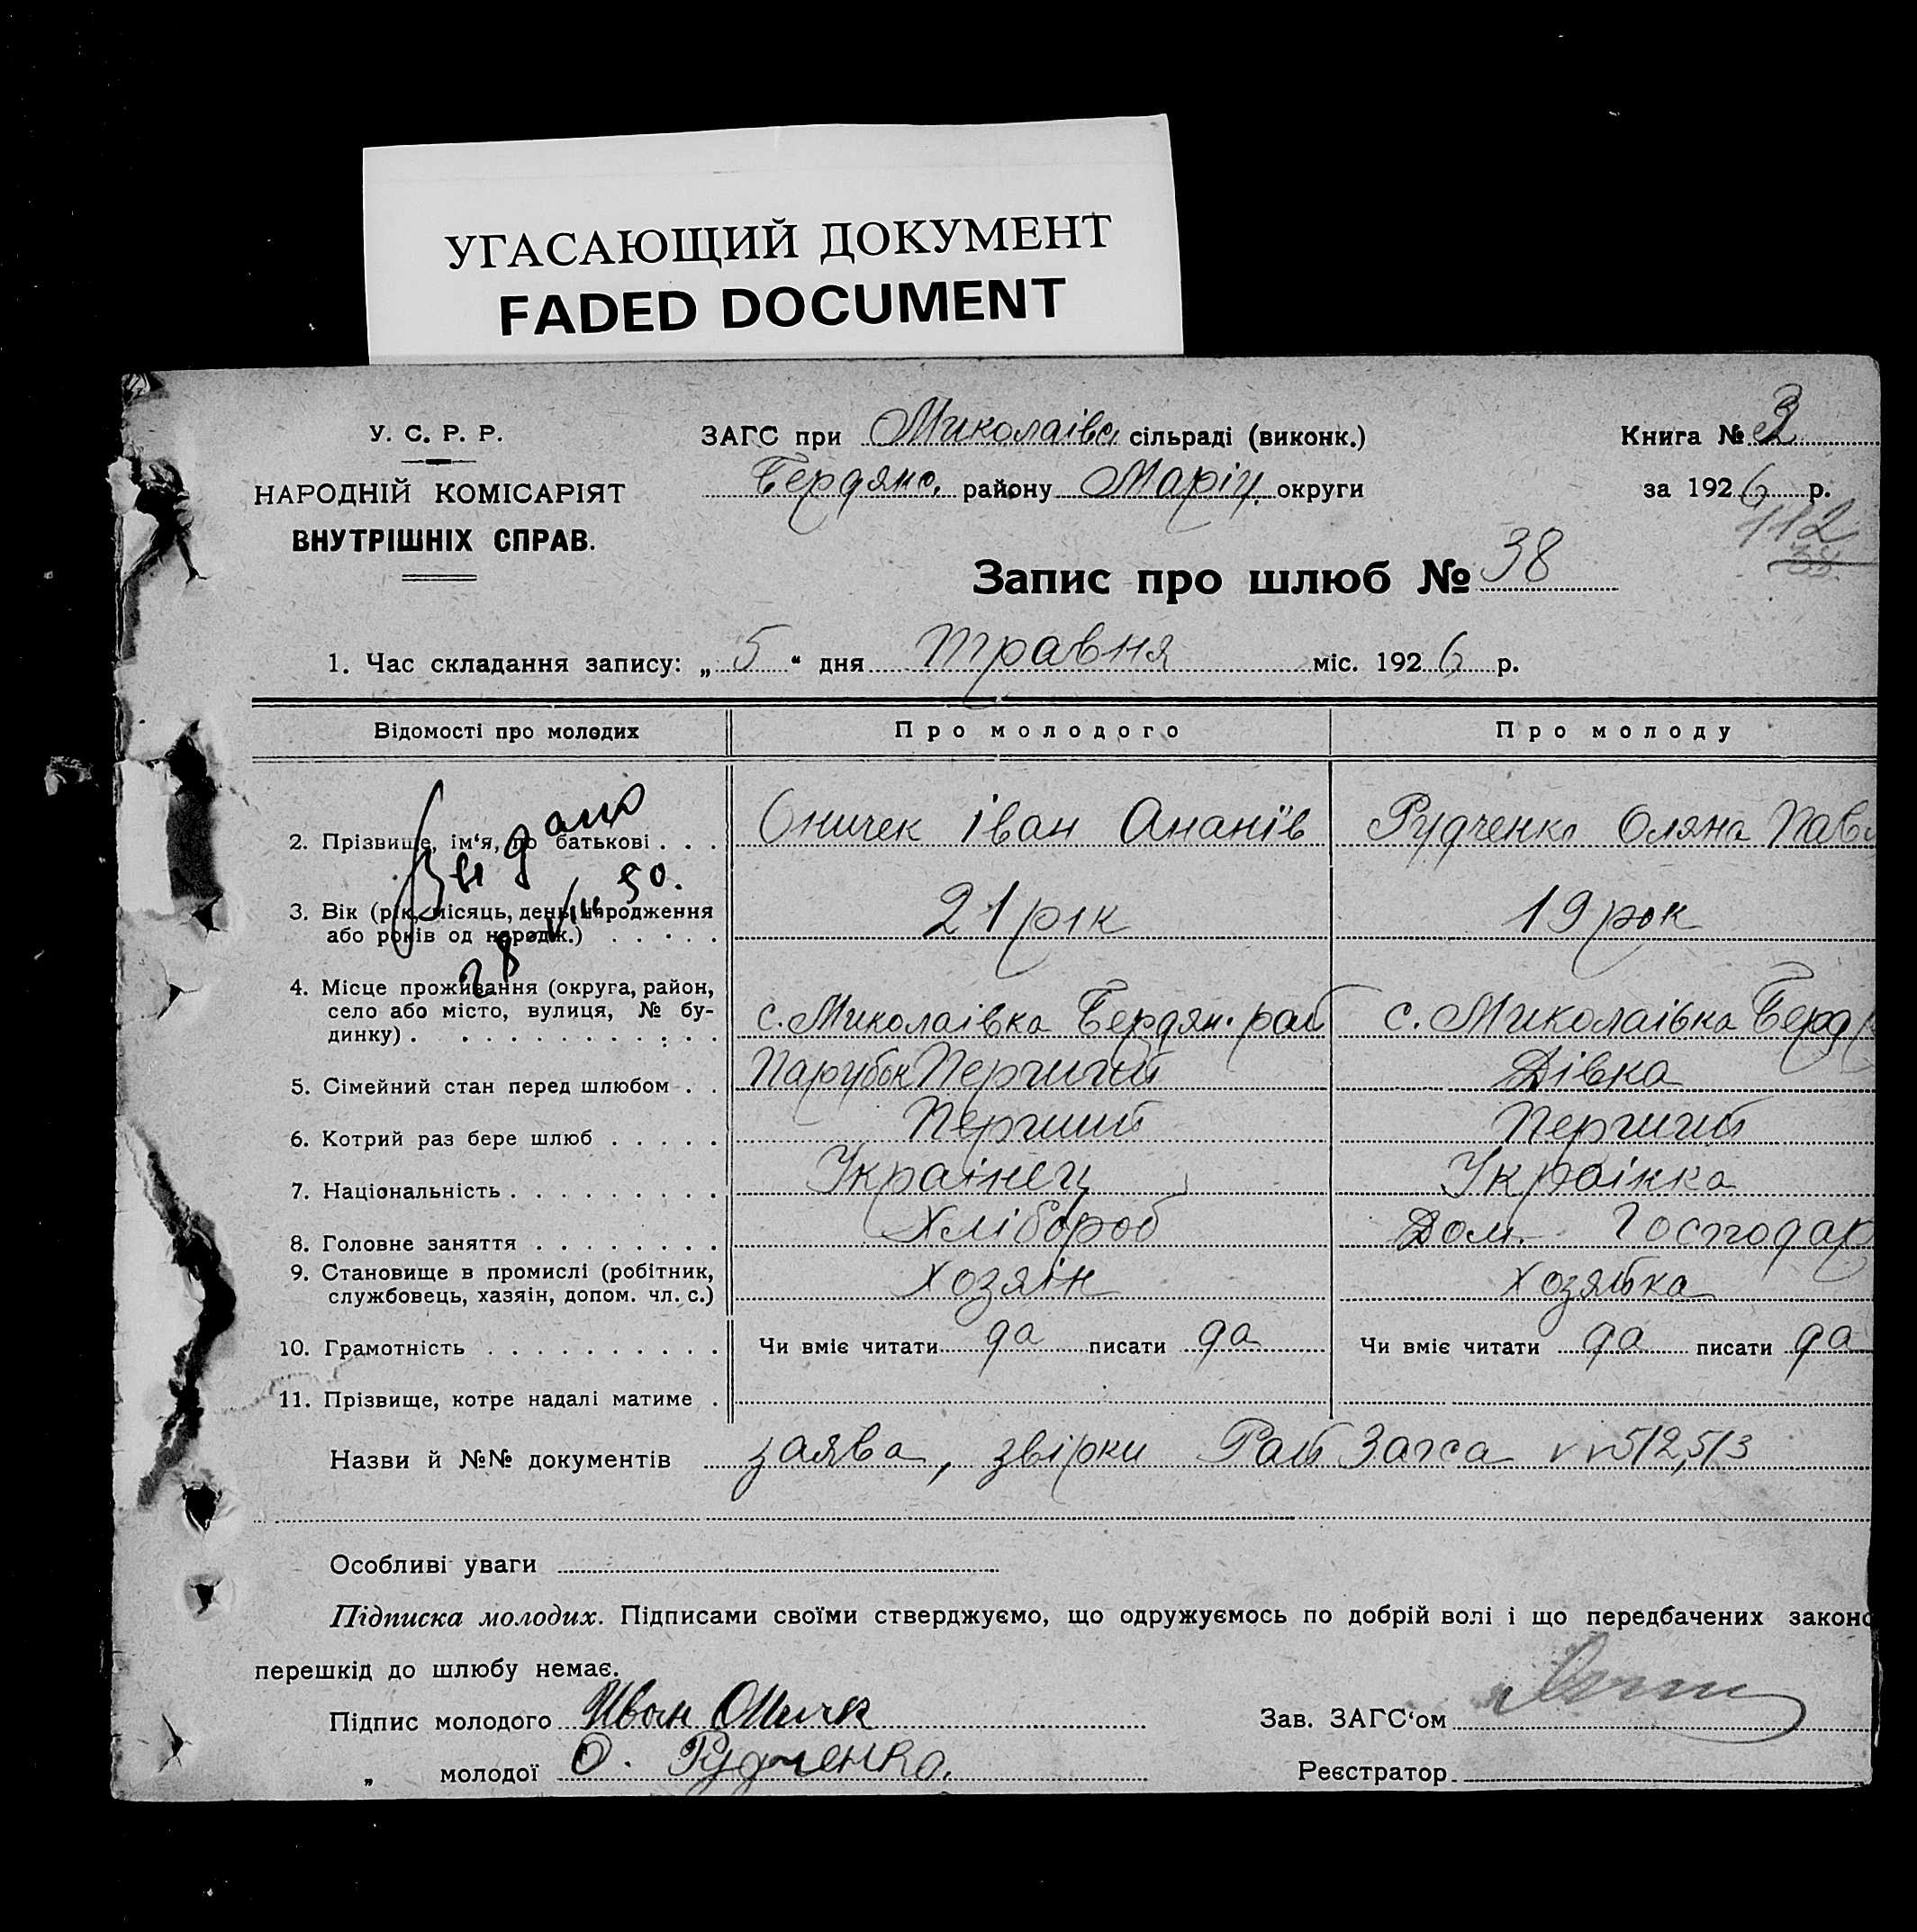 УГАСАЮЩИЙ ДОКУМЕНТ
FADED DOCUMENT
У. С. Р. Р.
НАРОДНІЙ КОМІСАРІЯТ
ВНУТРІШНІХ СПРАВ.
ЗАГС при Миколаівс сільраді (виконк.)
Бердянс. району Маріу. округи
Книга № 3
за 1926 р.
112
38.
Запис про шлюб № 38
1. Час складання запису: „ 5 “ дня травня міс. 1926 р.
Відомості про молодих Про молодого Про молоду
2. Прізвище, ім‘я, по батькові . . . Оничек Іван Ананіїв Рудченко Оляна Павл
Видано
28 VIII 50.
3. Вік (рік, місяць, день народження
або років од народж.) . . . . . 21 рік 19 рок
4. Місце проживання (округа, район,
село або місто, вулиця, № бу-
динку) . . . . . . . . . . . . с. Миколаівка Бердян. рай с. Миколаівка Берд р
5. Сімейний стан перед шлюбом . . Парубок Перший Дівка
6. Котрий раз бере шлюб . . . . . Перший Перший
7. Національність . . . . . . . . . Украінец Украінка
8. Головне заняття . . . . . . . . Хлібороб Дом. Господар
9. Становище в промислі (робітник,
службовець, хазяін, допом. чл. с.) Хозяін Хозяйка
10. Грамотність . . . . . . . . . . Чи вміє читати да писати да Чи вміє читати да писати да
11. Прізвище, котре надалі матиме .
Назви й №№ документів заява, звірки Рай Загса 512, 513
Особливі уваги
Підписка молодих. Підписами своїми стверджуємо, що одружуємось по добрій волі і що передбачених законо
перешкід до шлюбу немає.
Підпис молодого Иван Оничк
Зав. ЗАГС‘ом
„ молодої О. Рудченко.
Реєстратор